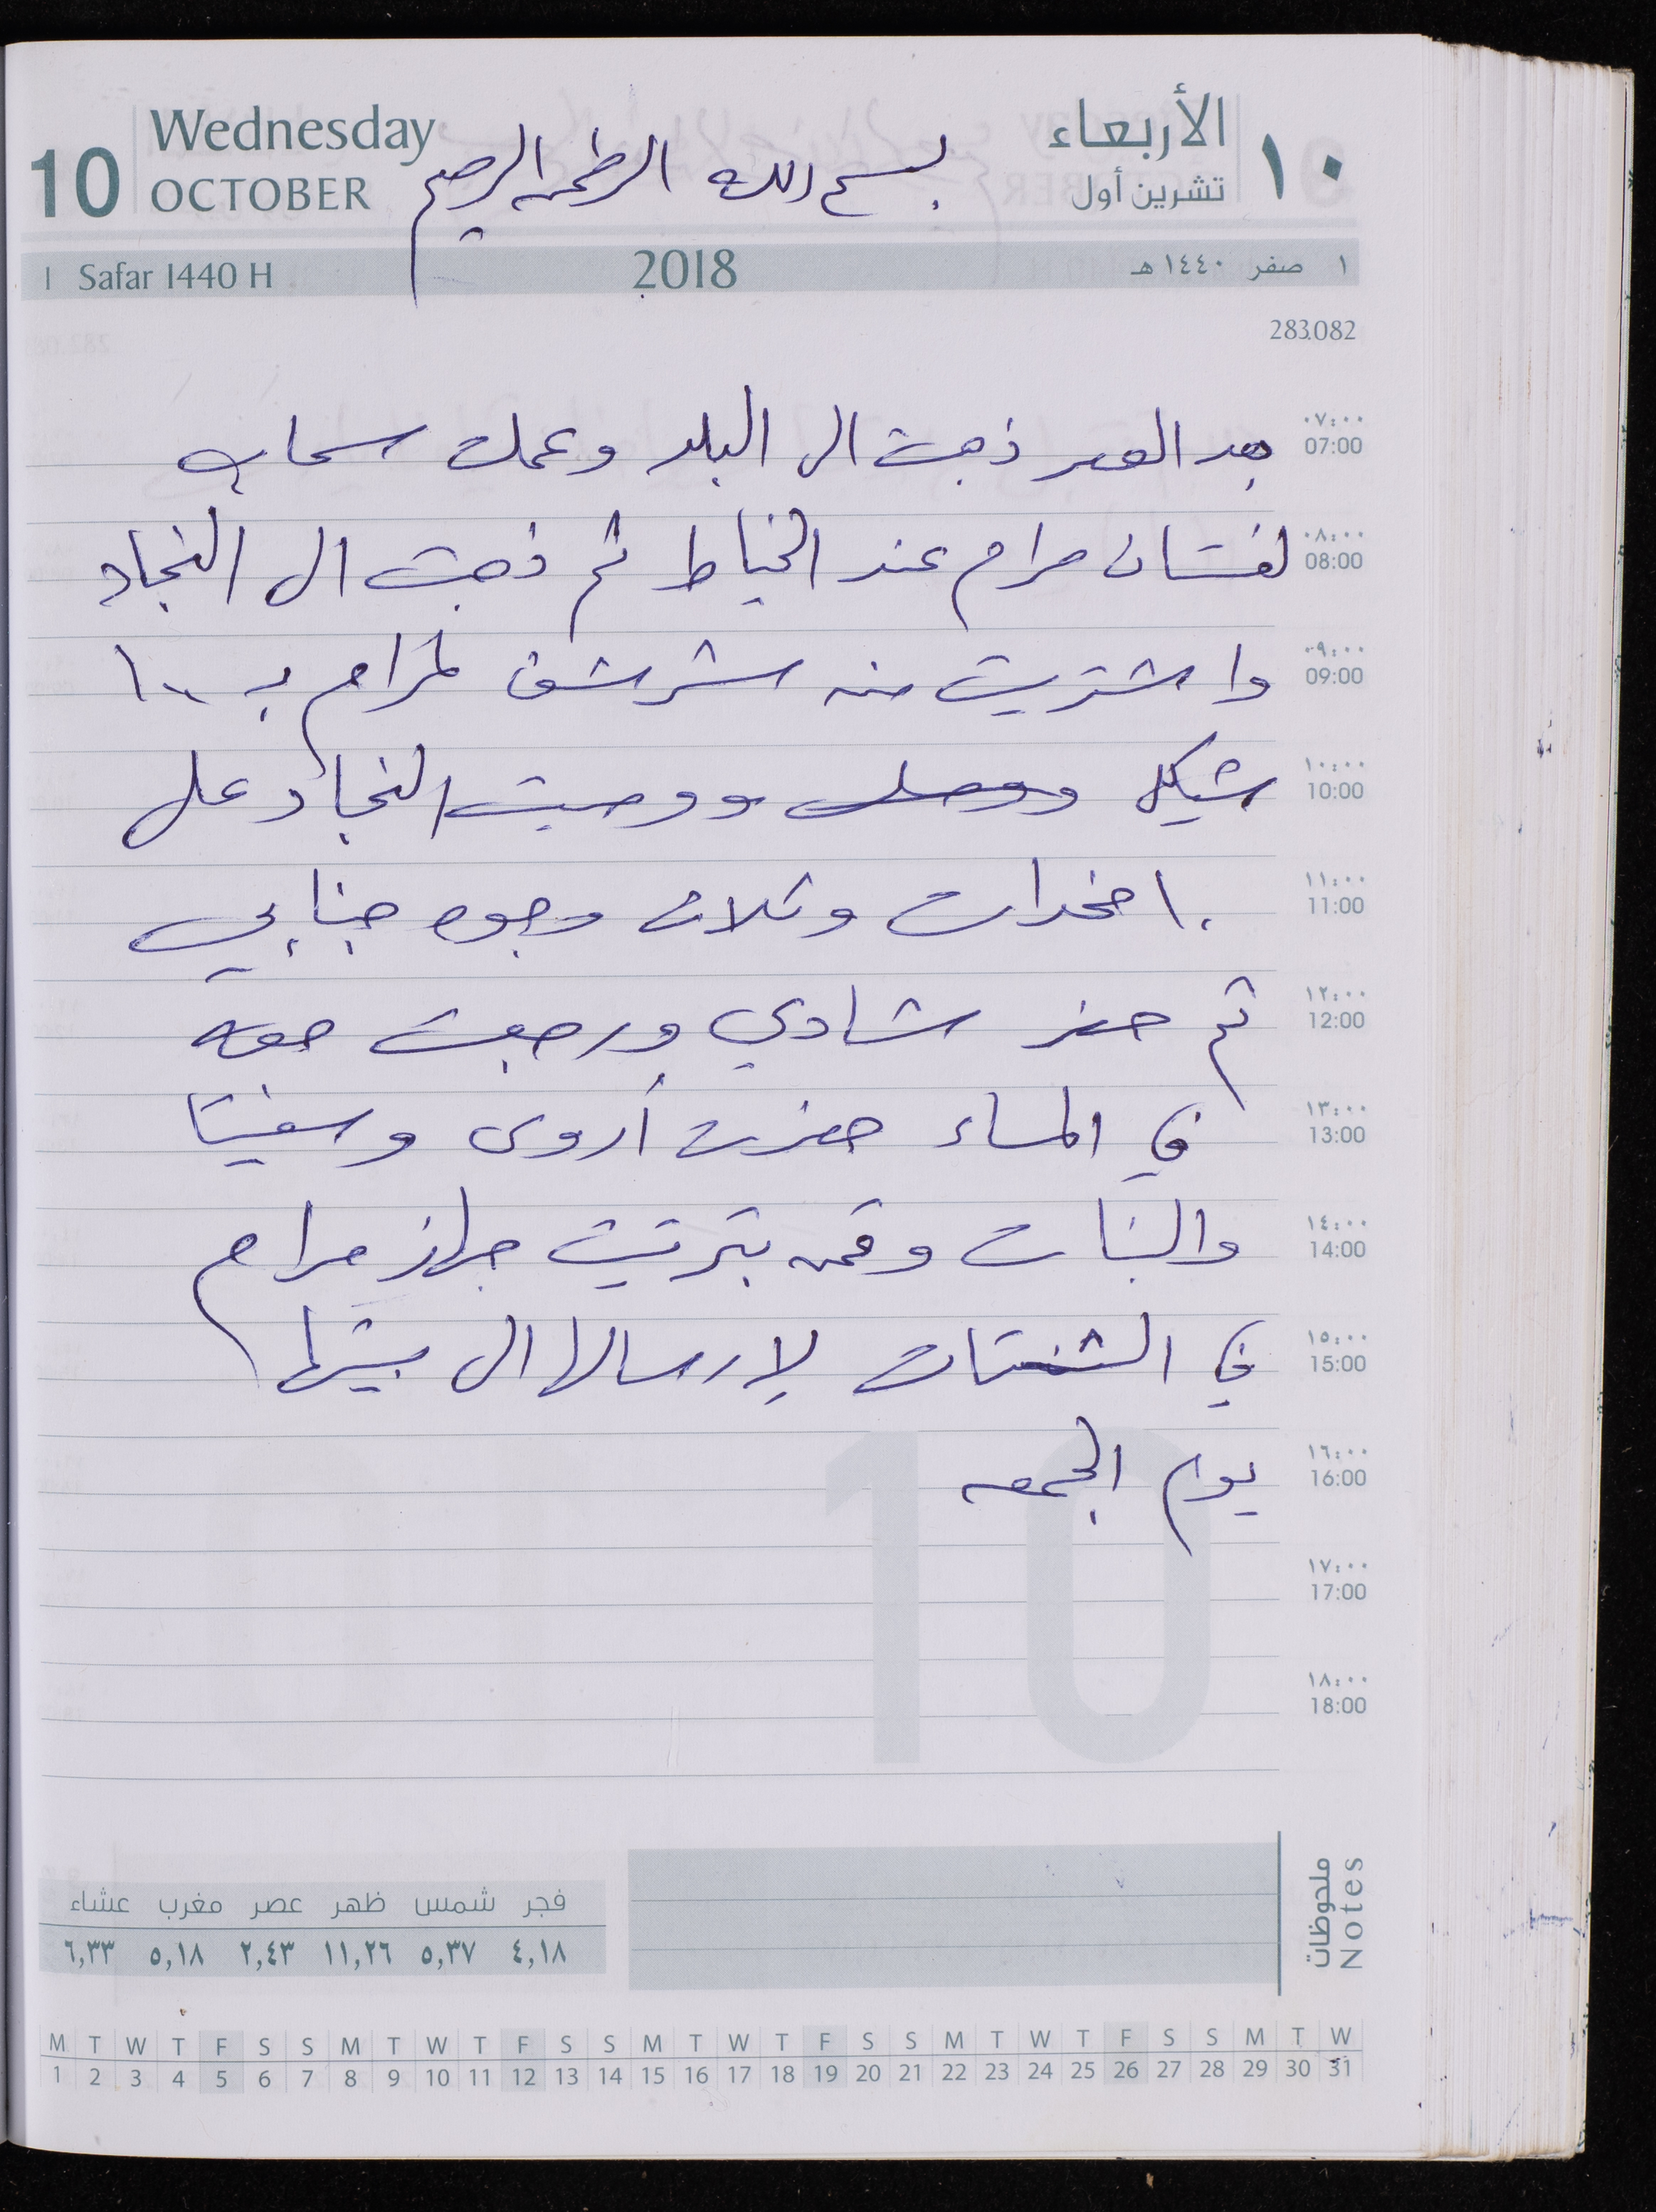 10 Wednesday OCTOBER
١٠ الأربعاء تشرين أول
بسم الله الرحمن الرحيم
1 Safar 1440 H 2018 ١ صفر ١٤٤٠ هـ
283.082
٠٧:٠٠ 07:00 بعد العصر ذهبت الى البلد وعملت سحاب
٠٨:٠٠ 08:00 لفستان مرام عند الخياط ثم ذهبت الى النجاد
٠٩:٠٠ 09:00 واشتريت منه شرشف لمرام ب ١٠٠
١٠:٠٠ 10:00 شيكل ووصيت النجاد على
١١:٠٠ 11:00 ١٠ مخدات وثلاث وجوه جنابي
١٢:٠٠ 12:00 ثم حضر شادي ورجعت معه
١٣:٠٠ 13:00 في المساء حضرت أروى وسفيتا
١٤:٠٠ 14:00 والبنات وقمن بترتيب جهاز مرام
١٥:٠٠ 15:00 في الشنتات لإرسالها الى بيتها
١٦:٠٠ 16:00 يوم الجمعه
١٧:٠٠ 17:00
١٨:٠٠ 18:00
ملحوظات Notes
فجر شمس ظهر عصر مغرب عشاء
٤,١٨ ٥,٣٧ ١١,٢٦ ٢,٤٣ ٥,١٨ ٦,٣٣
M T W T F S S M T W T F S S M T W T F S S M T W T F S S M T W
1 2 3 4 5 6 7 8 9 10 11 12 13 14 15 16 17 18 19 20 21 22 23 24 25 26 27 28 29 30 31